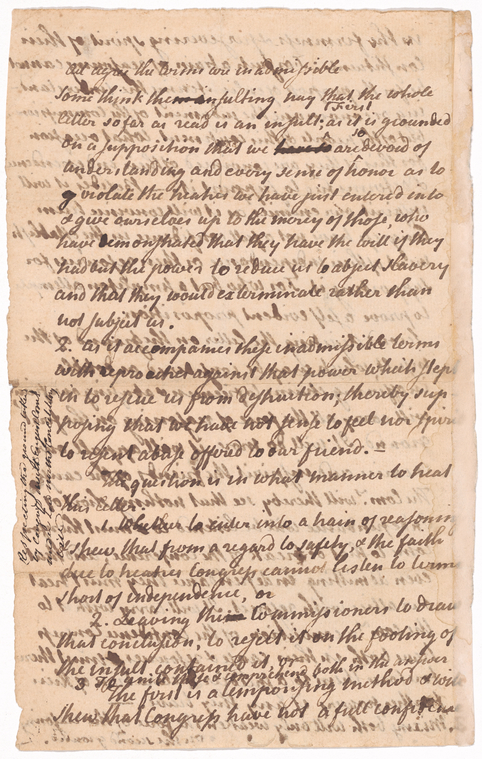 all agree the terms are inadmissible
Some think them insulting nay that the whole
letter so far as read is an insult, 1 first as it is grounded
on a supposition that we are so devoid of
understanding and every sense of honor as to
violate the treaties we have just entered into
& give ourselves up to the mercy of those, who
have demonstrated that they have the will if they
had but the power to reduce us to abject slavery
and that they would exterminate rather than
not subject us.
2. as it accompanies these inadmissible terms
with reproaches against that power which step
in to rescue us from destruction, thereby sup
posing that we have not sense to feel nor spirit
to resent abuse offered to our friend. —
The question is in what manner to treat
this letter
1. Whether to enter into a train of reasoning
& shew that from a regard to safety & the faith
due to treaties Congress cannot listen to terms
short of independence, or
2. Leaving the Commissioners to draw
that conclusion, to reject it on the footing of
the insult contained it or
3. To unite these & comprehend both in the answer
The first is a temporising method & will
shew that Congress have not a full confidence
Respecting the ground
by